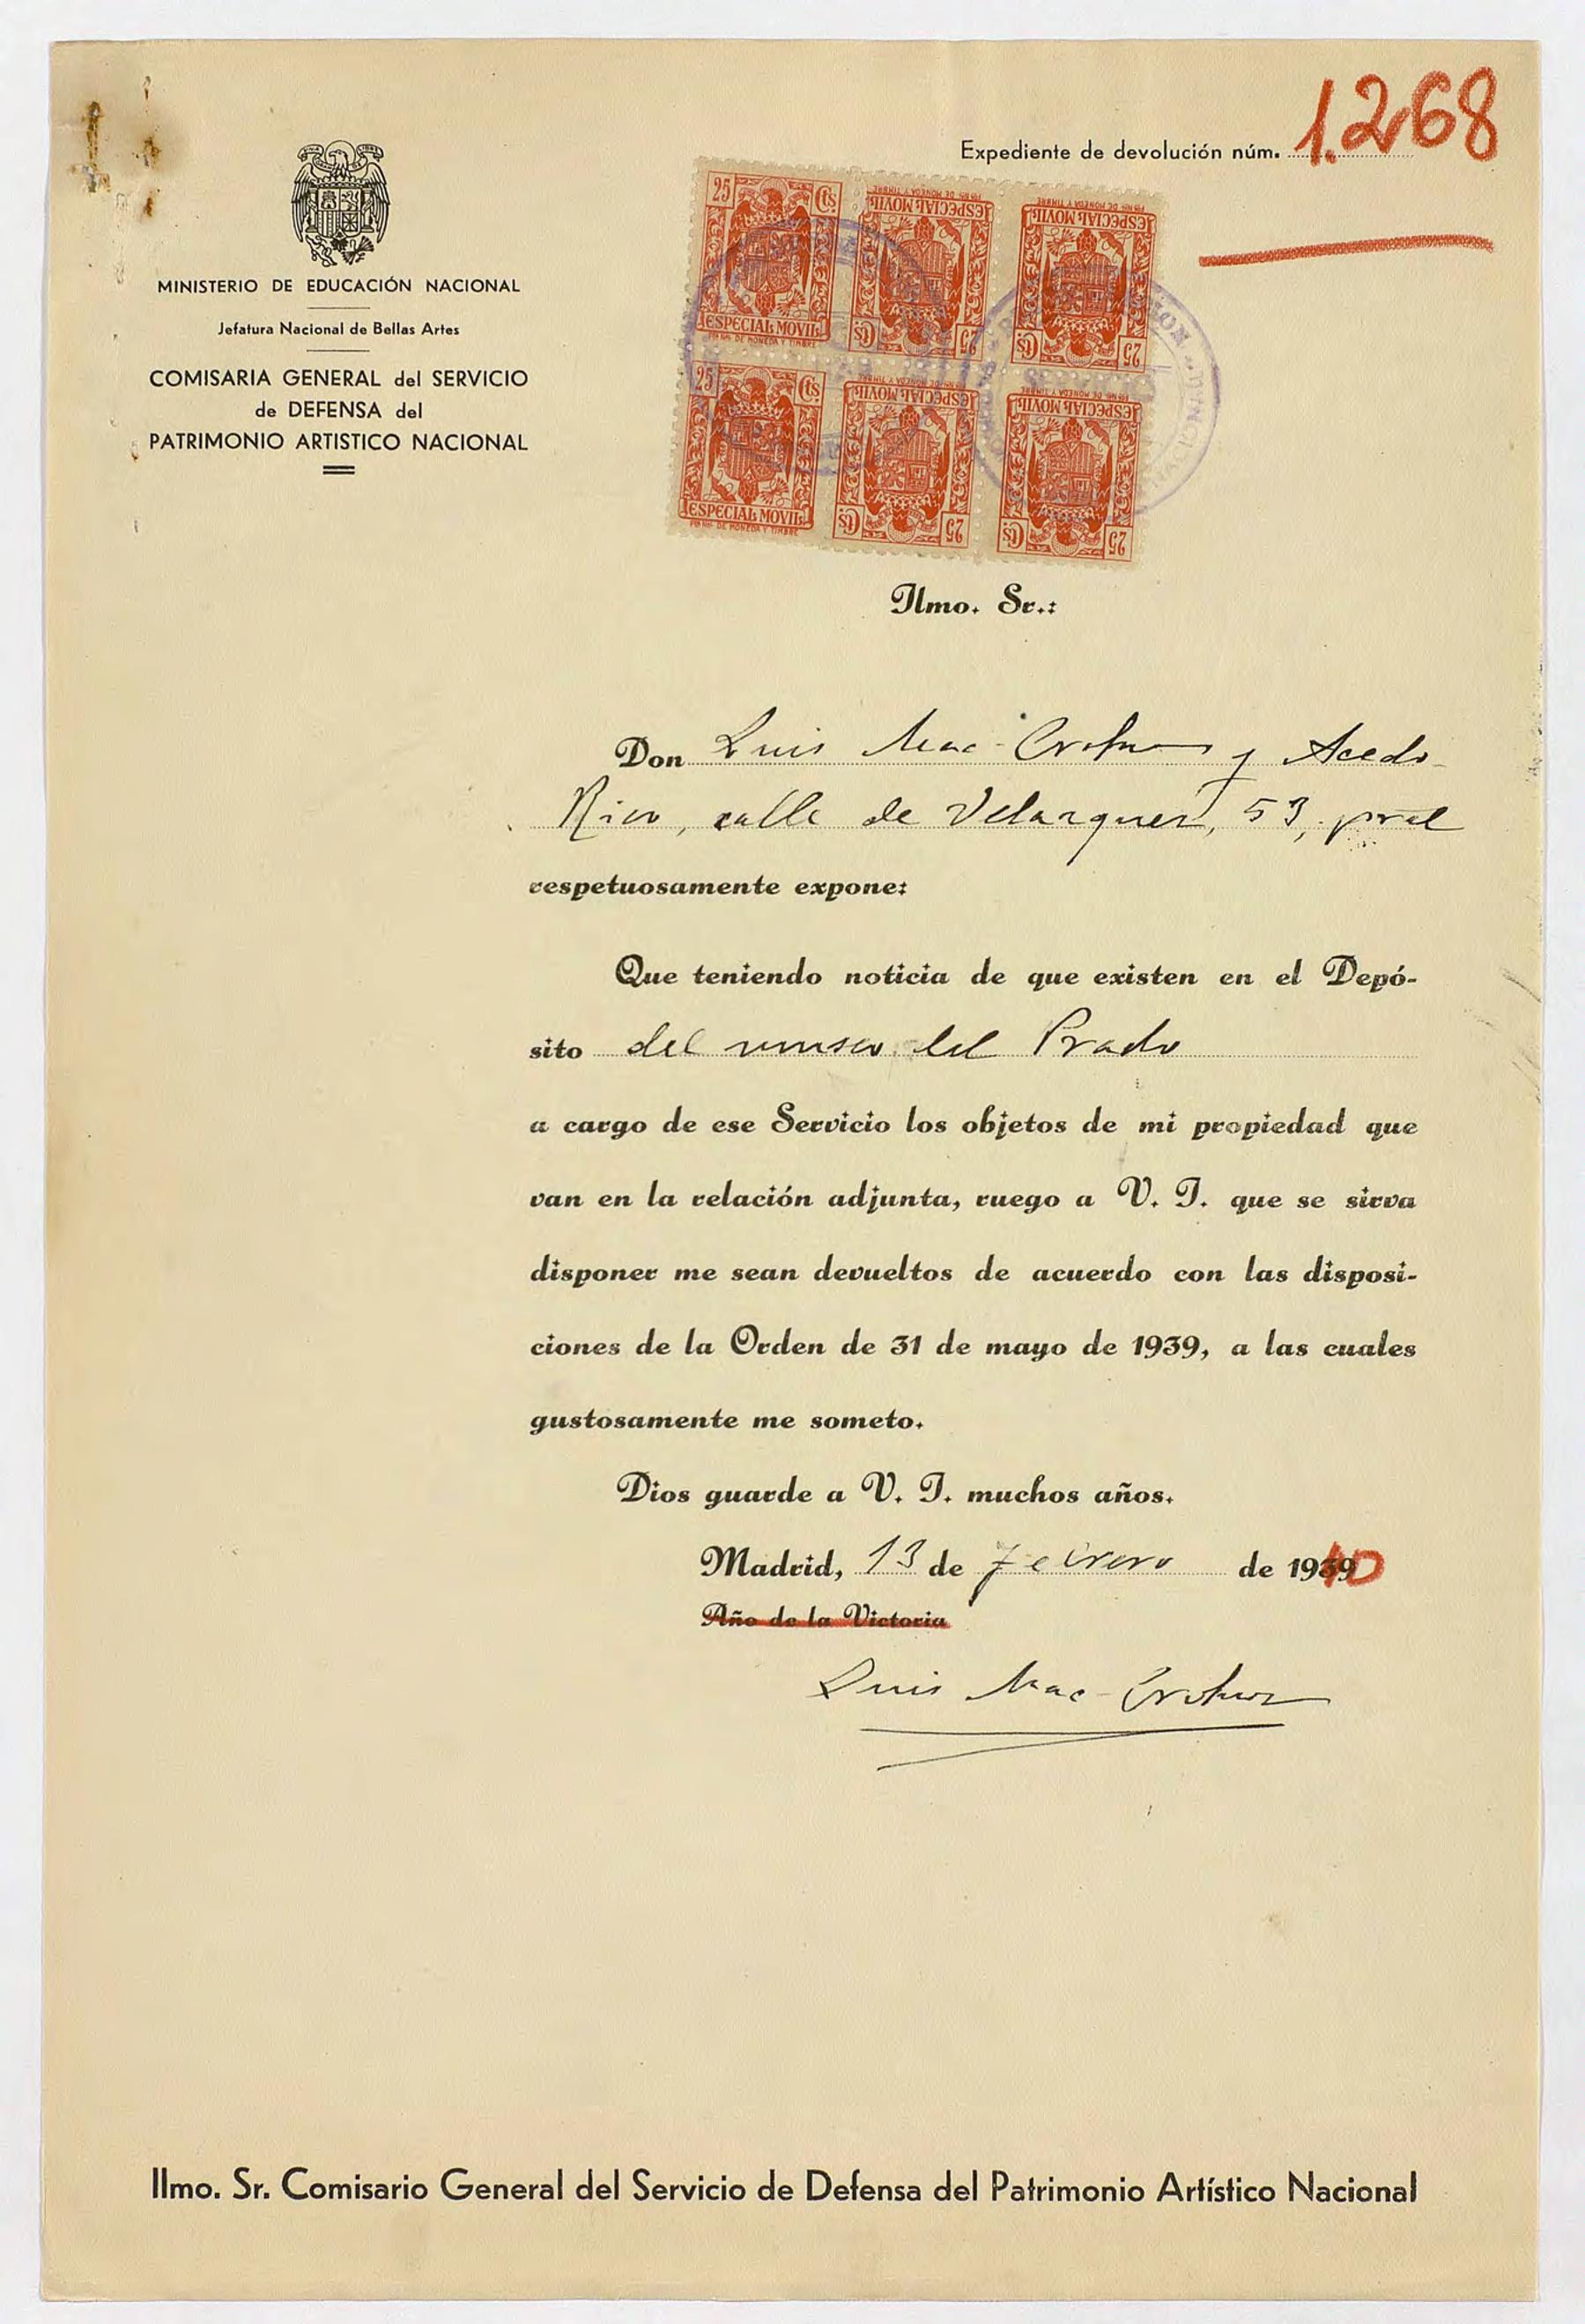 Expediente de devolución núm. 1.268
MINISTERIO DE EDUCACIÓN NACIONAL
Jefatura Nacional de Bellas Artes
COMISARIA GENERAL del SERVICIO
de DEFENSA del
PATRIMONIO ARTISTICO NACIONAL
25 Cts
ESPECIAL MOVIL
ESPECIAL MOVIL
25 Cts
ESPECIAL MOVIL
25 Cts
25 Cts
ESPECIAL MOVIL
ESPECIAL MOVIL
25 Cts
ESPECIAL MOVIL
25 Cts
Ilmo. Sr.:
Don Luis Mac-Crohon y Acedo-
Rico, calle de Velazquez, 53, pral
respetuosamente expone:
Que teniendo noticia de que existen en el Depó-
sito del museo del Prado
a cargo de ese Servicio los objetos de mi propiedad que
van en la relación adjunta, ruego a V. I. que se sirva
disponer me sean devueltos de acuerdo con las disposi-
ciones de la Orden de 31 de mayo de 1939, a las cuales
gustosamente me someto.
Dios guarde a V. I. muchos años.
Madrid, 13 de Febrero de 1940
Año de la Victoria
Luis Mac-Crohon
Ilmo. Sr. Comisario General del Servicio de Defensa del Patrimonio Artístico Nacional